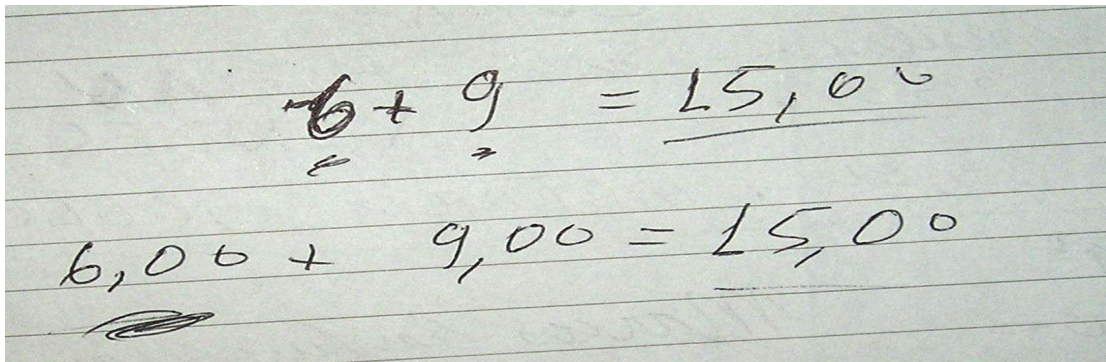 6 + 9 = 15,00
6,00 + 9,00 = 15,00